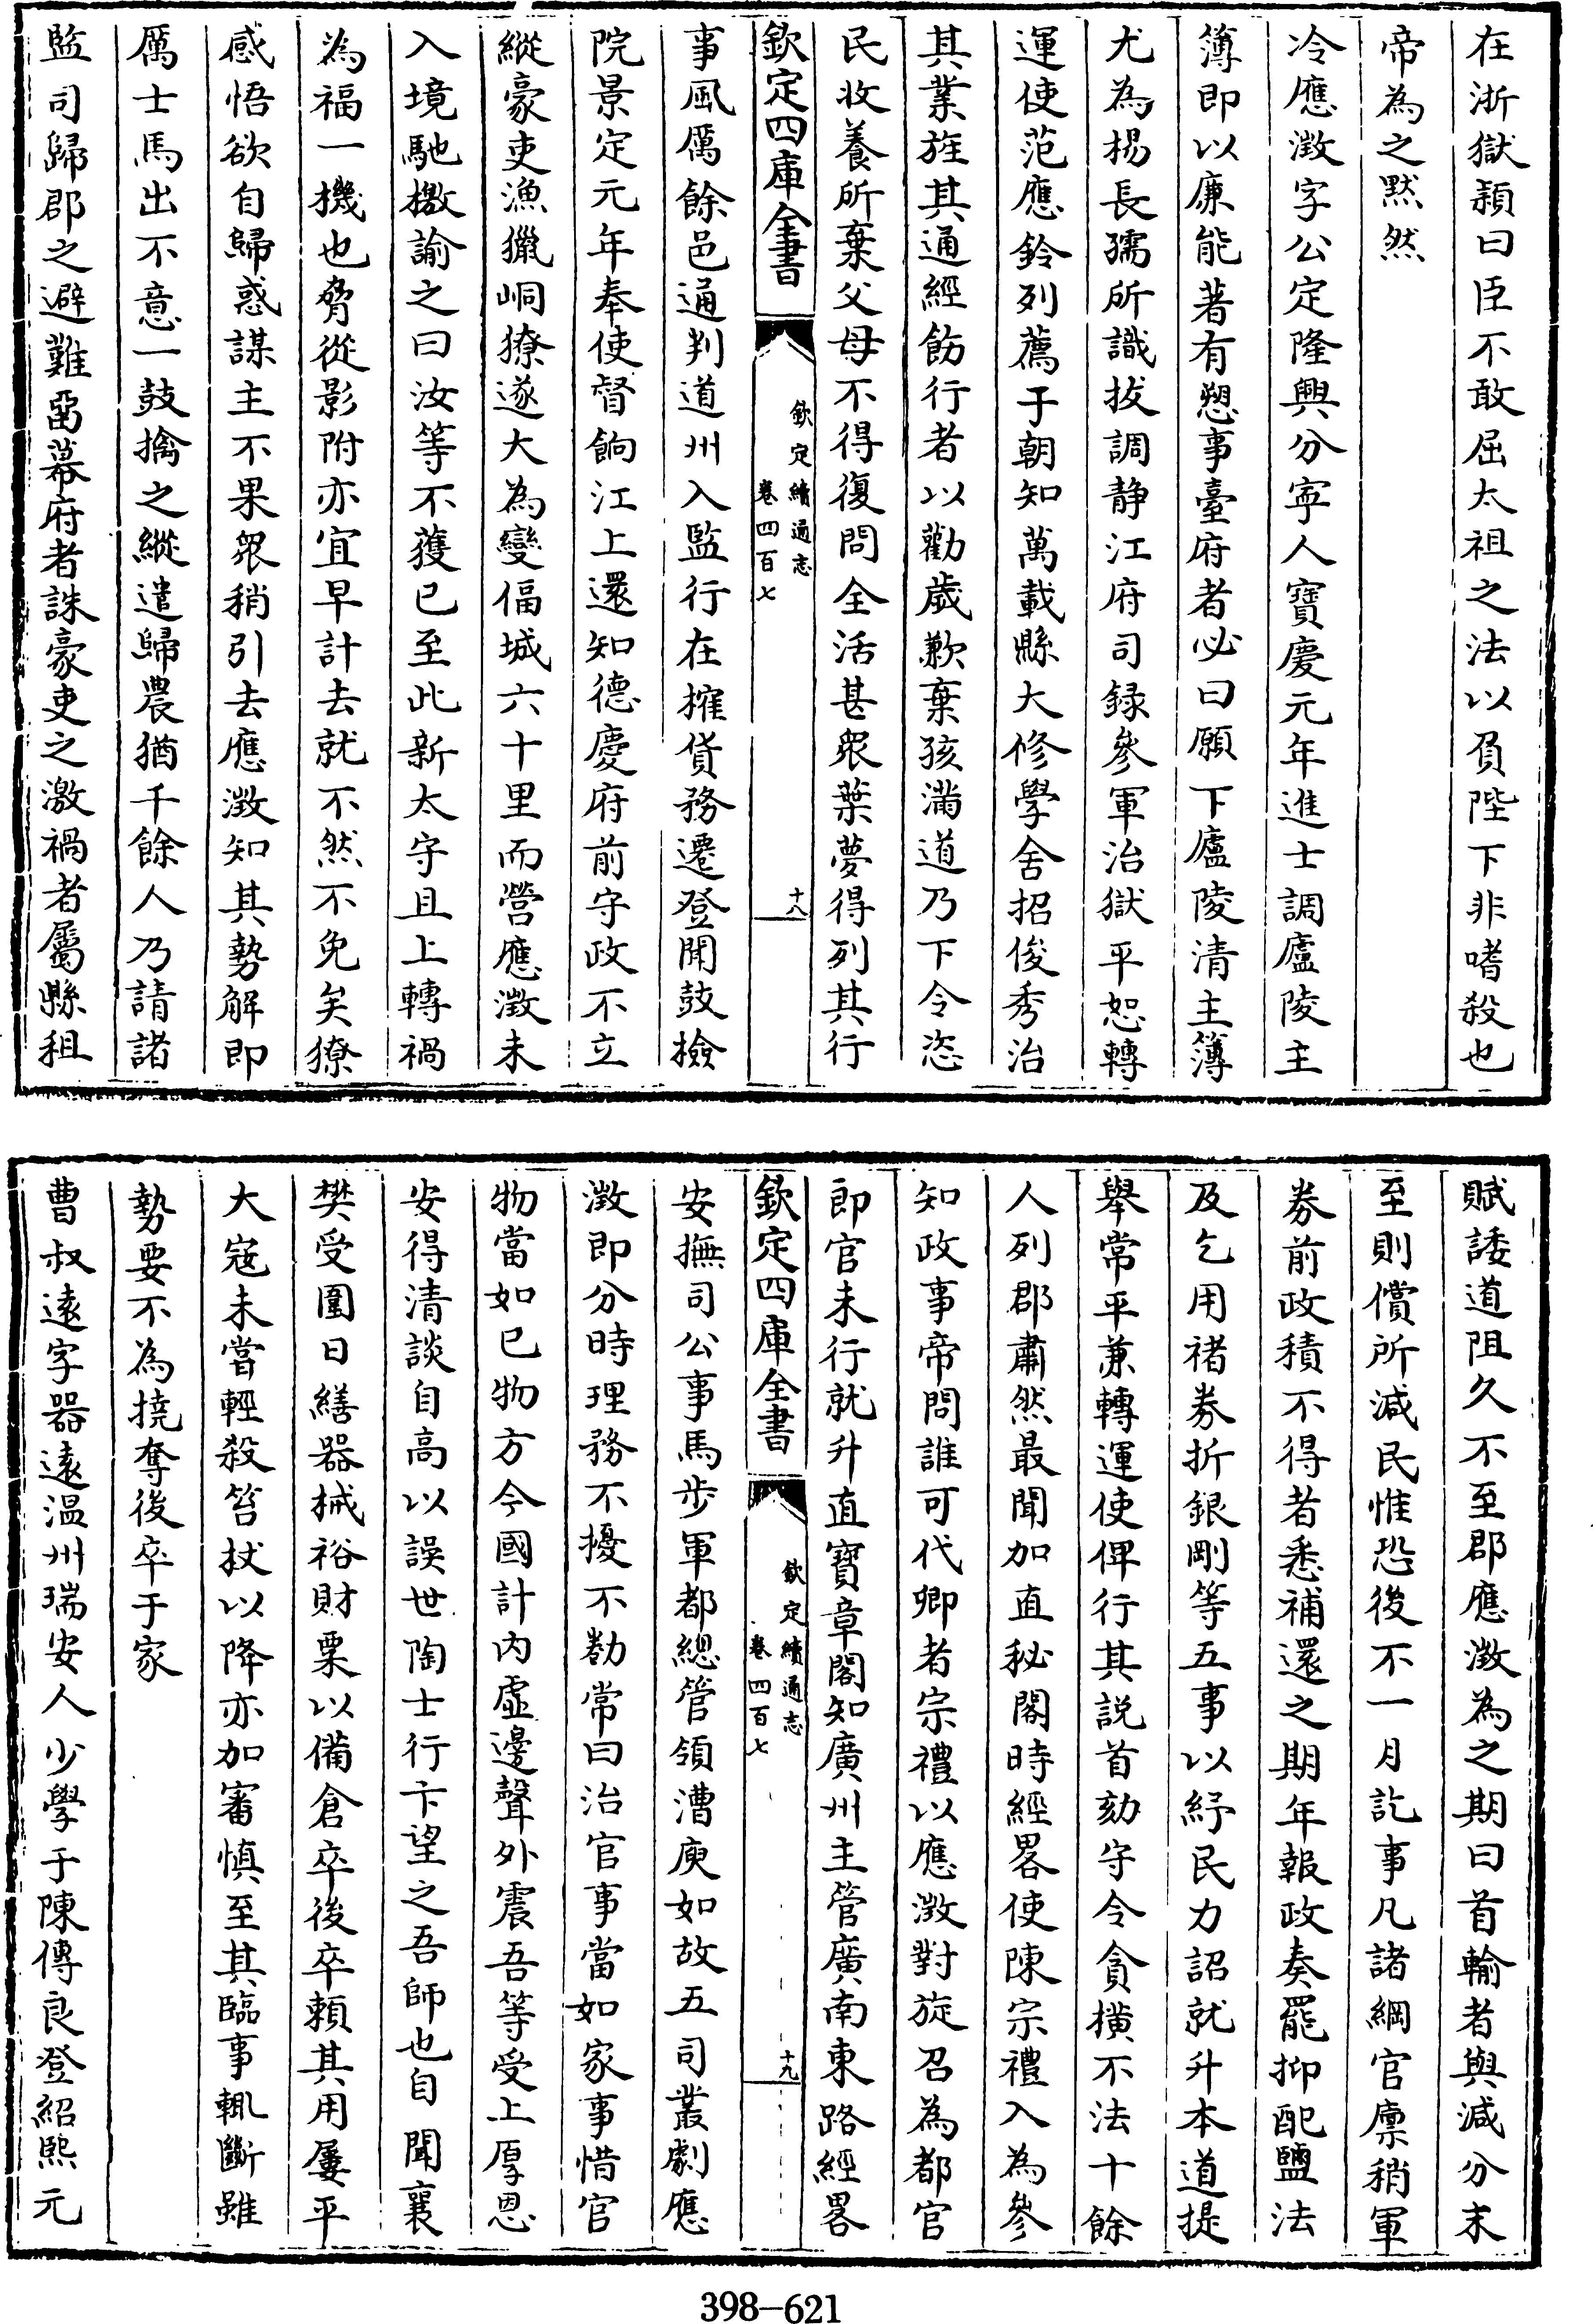 在浙獄潁曰臣不敢屈太祖之法以負陛下非嗜殺也
帝為之黙然
冷應澂字公定隆興分寧人寶慶元年進士調廬陵主
簿即以亷能著有愬事臺府者必曰願下廬陵清主簿
尤為楊長孺所識拔調静江府司録參軍治獄平恕轉
運使范應鈴列薦于朝知萬載縣大修學舍招俊秀治
其業旌其通經飭行者以勸歲歉棄孩滿道乃下令恣
民收養所棄父母不得復問全活甚衆葉夢得列其行
欽定四庫全書
欽定續通志
卷四百七
十八
事風厲餘邑通判道州入監行在搉貨務遷登聞鼓檢
院景定元年奉使督餉江上還知德慶府前守政不立
縱豪吏漁獵峒獠遂大為變偪城六十里而營應澂未
入境馳檄諭之曰汝等不獲已至此新太守且上轉禍
為福一機也脅從影附亦宜早計去就不然不免矣獠
感悟欲自歸惑謀主不果衆稍引去應澂知其勢解即
厲士馬出不意一鼓擒之縱遣歸農猶千餘人乃請諸
監司歸郡之避難畱幕府者誅豪吏之激禍者屬縣租
賦諉道阻久不至郡應澂為之期曰首輸者與減分末
至則償所減民惟恐後不一月訖事凡諸綱官廪稍軍
券前政積不得者悉補還之期年報政奏罷抑配鹽法
及乞用褚券折銀剛等五事以紓民力詔就升本道提
舉常平兼轉運使俾行其説首劾守令貪橫不法十餘
人列郡肅然最聞加直秘閣時經畧使陳宗禮入為參
知政事帝問誰可代卿者宗禮以應澂對旋召為都官
郎官未行就升直寶章閣知廣州主管廣南東路經畧
欽定四庫全書
欽定續通志
卷四百七
十九
安撫司公事馬步軍都總管領漕庾如故五司叢劇應
澂即分時理務不擾不勌常曰治官事當如家事惜官
物當如已物方今國計内虚邊聲外震吾等受上厚恩
安得清談自高以誤世陶士行卞望之吾師也自聞襄
樊受圍日繕器械裕財粟以備倉卒後卒賴其用屢平
大冦未嘗輕殺笞扙以降亦加審慎至其臨事輒斷雖
勢要不為撓奪後卒于家
曹叔逺字器逺温州瑞安人少學于陳傳良登紹熙元
398—621